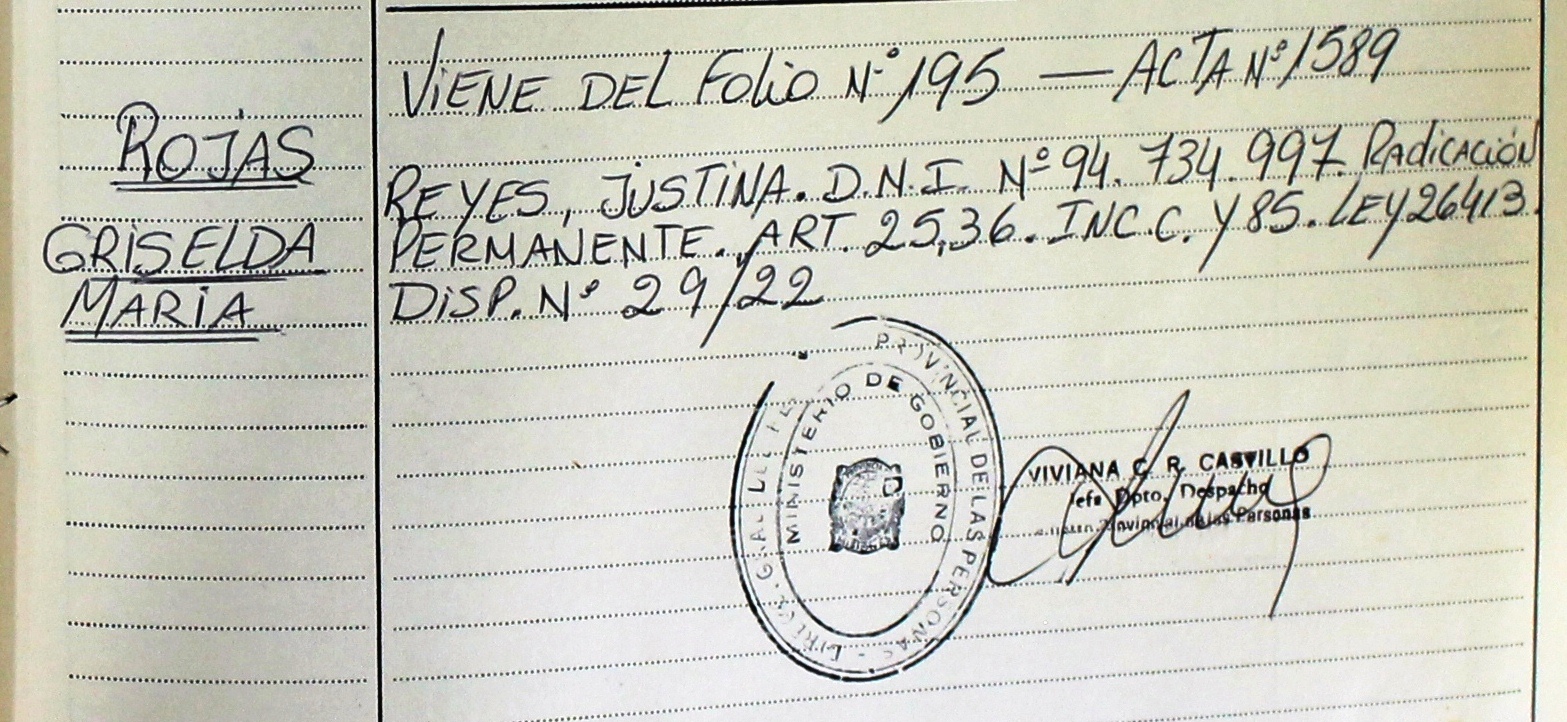 ROJAS
GRISELDA
MARIA
VIENE DEL FOLIO Nº 195 — ACTA Nº 1589
REYES, JUSTINA. D.N.I. Nº 94.734.997. RADICACIÓN
PERMANENTE. ART. 25,36. INC C. Y 85. LEY 26413.
DISP. Nº 29/22
PROVINCIAL DE LAS PERSONAS -
MINISTERIO DE GOBIERNO
VIVIANA C. R. CASTILLO
Jefa Dpto. Despacho
Provincial de las Personas